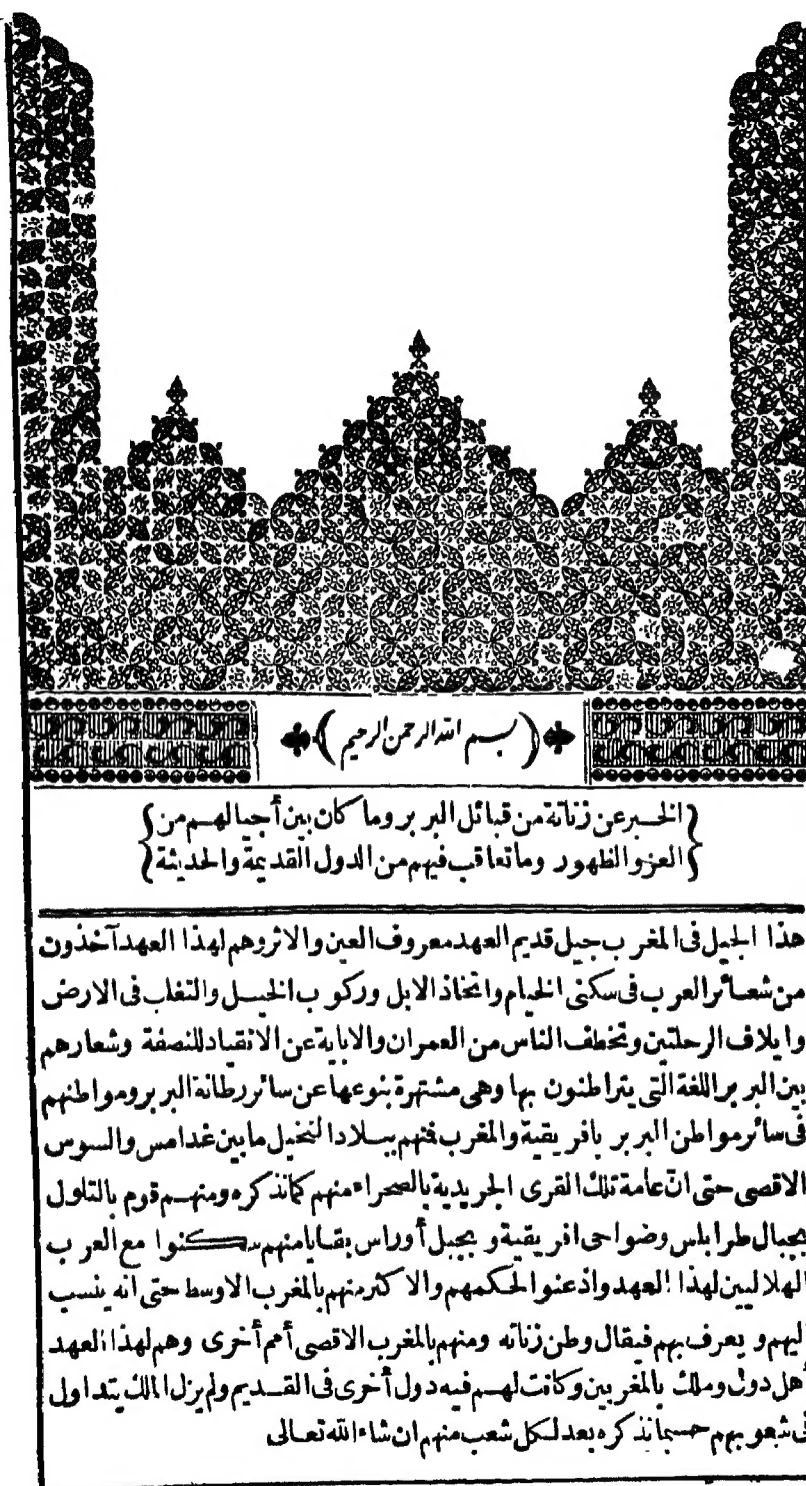 بسم الله الرحمن الرحيم
الخبر عن زناتة من قبائل البربر وما كان بين أجيالهم من
العز والظهور وما تعاقب فيهم من الدول القديمة والحديثة
هذا الجيل فى المغرب جيل قديم العهد معروف العين والاثر وهم لهذا العهد آخذون
من شعائر العرب فى سكنى الخيام واتخاذ الابل وركوب الخيل والتغلب فى الارض
وايلاف الرحلتين وتخطف الناس من العمران والاباية عن الانقياد للنصفة وشعارهم
بين البربر اللغة التى يتراطنون بها وهى مشتهرة بنوعها عن سائر رطانة البربر ومواطنهم
فى سائر مواطن البربر بافريقية والمغرب فنهم ببلاد النخيل مابين غدامس والسوس
الاقصى حتى انّ عامة تلك القرى الجريدية بالصحراء منهم كمانذكره ومنهم قوم بالتلول
بجبال طرابلس وضواحى افريقية وبجبل أوراس بقايا منهم سكنوا مع العرب
الهلاليين لهذا العهد واذعنوا لحكمهم والاكثر منهم بالمغرب الاوسط حتى انه ينسب
اليهم ويعرف بهم فيقال وطن زناته ومنهم بالمغرب الاقصى أمم أخرى وهم لهذا العهد
أهل دول وملك بالمغربين وكانت لهم فيه دول أخرى فى القديم ولم يزل الملك يتداول
فى شعوبهم حسبما نذكره بعد لكل شعب منهم ان شاء الله تعالى